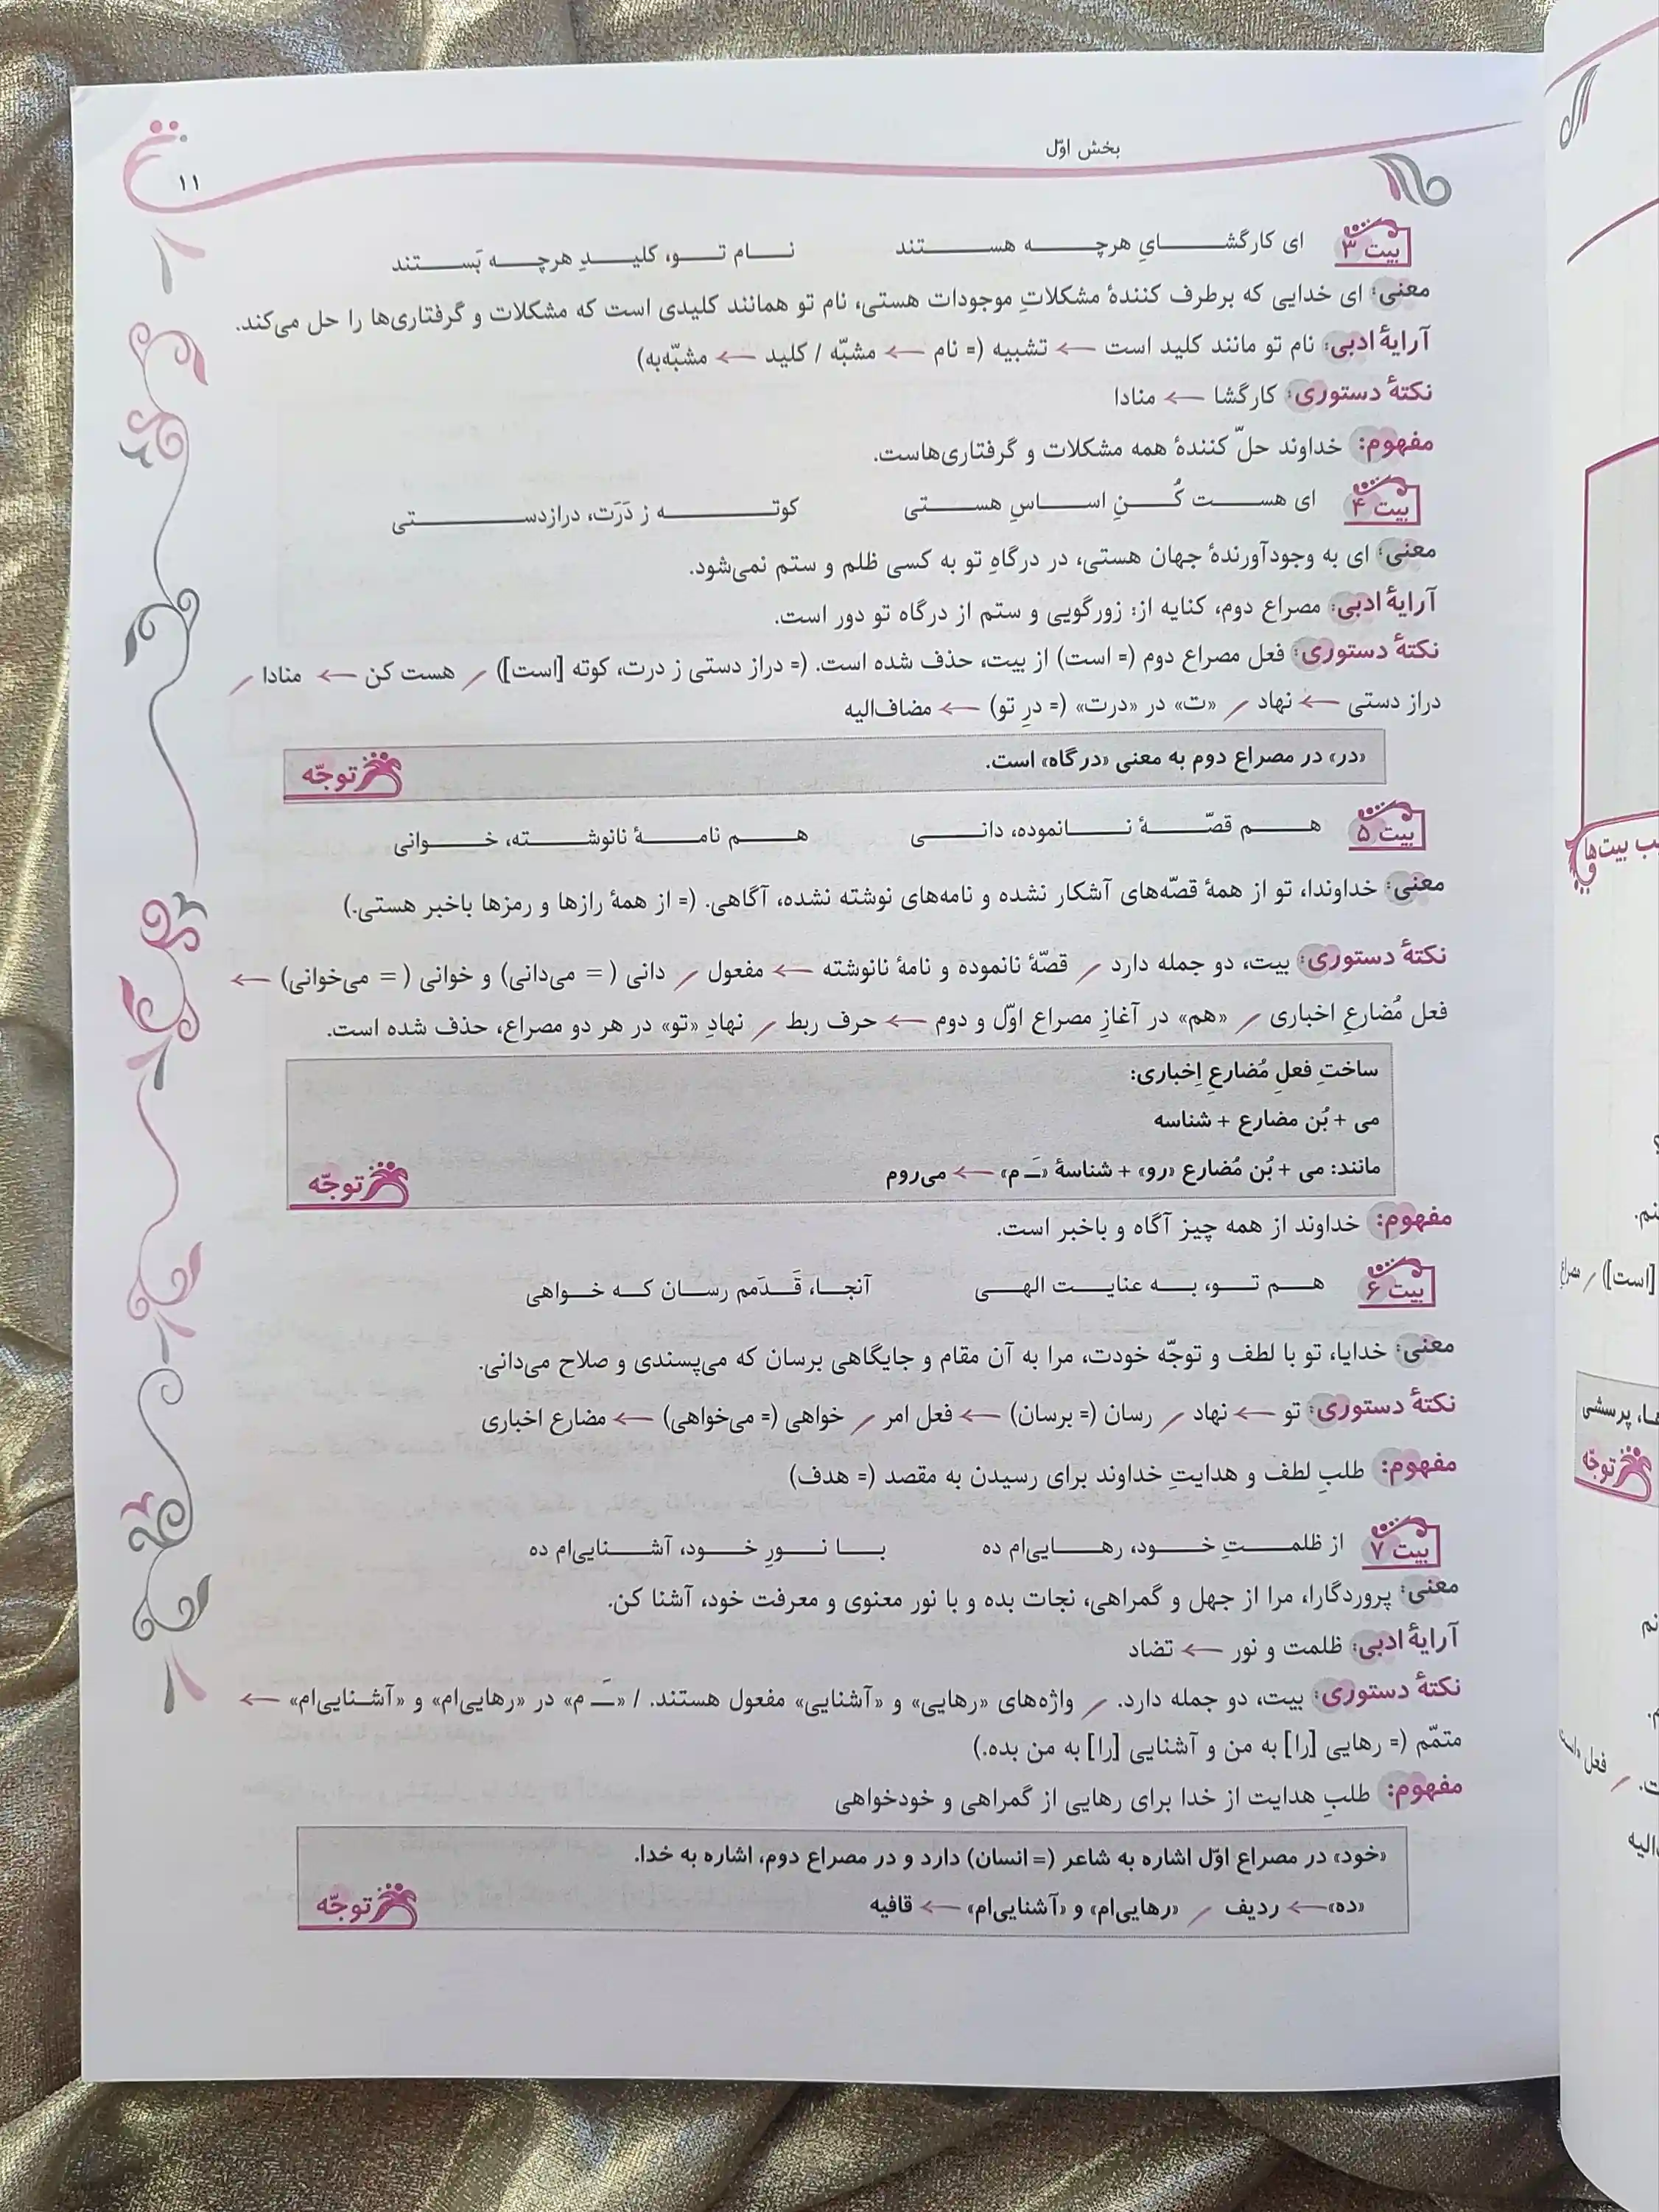 بخش اوّل
۱۱
بیت ۳ ای کارگشایِ هرچه هستند نام تو، کلیدِ هرچه بَستند
معنی: ای خدایی که برطرف کنندهٔ مشکلاتِ موجودات هستی، نام تو همانند کلیدی است که مشکلات و گرفتاری‌ها را حل می‌کند.
آرایهٔ ادبی: نام تو مانند کلید است ← تشبیه (= نام ← مشبّه / کلید ← مشبّه‌به)
نکتهٔ دستوری: کارگشا ← منادا
مفهوم: خداوند حلّ کنندهٔ همه مشکلات و گرفتاری‌هاست.
بیت ۴ ای هست کُنِ اساسِ هستی کوته ز دَرَت، درازدستی
معنی: ای به وجودآورندهٔ جهان هستی، در درگاهِ تو به کسی ظلم و ستم نمی‌شود.
آرایهٔ ادبی: مصراع دوم، کنایه از: زورگویی و ستم از درگاه تو دور است.
نکتهٔ دستوری: فعل مصراع دوم (= است) از بیت، حذف شده است. (= دراز دستی ز درت، کوته [است]) / هست کن ← منادا /
دراز دستی ← نهاد / «ت» در «درت» (= درِ تو) ← مضاف‌الیه
«در» در مصراع دوم به معنی «درگاه» است.
توجّه
بیت ۵ هم قصّهٔ نانموده، دانی هم نامهٔ نانوشته، خوانی
معنی: خداوندا، تو از همهٔ قصّه‌های آشکار نشده و نامه‌های نوشته نشده، آگاهی. (= از همهٔ رازها و رمزها باخبر هستی.)
نکتهٔ دستوری: بیت، دو جمله دارد / قصّهٔ نانموده و نامهٔ نانوشته ← مفعول / دانی (= می‌دانی) و خوانی (= می‌خوانی) ←
فعل مُضارعِ اخباری / «هم» در آغازِ مصراع اوّل و دوم ← حرف ربط / نهادِ «تو» در هر دو مصراع، حذف شده است.
ساختِ فعلِ مُضارعِ اِخباری:
می + بُن مضارع + شناسه
مانند: می + بُن مُضارع «رو» + شناسهٔ «ـَ م» ← می‌روم
توجّه
مفهوم: خداوند از همه چیز آگاه و باخبر است.
بیت ۶ هم تو، به عنایت الهی آنجا، قَدَمم رسان که خواهی
معنی: خدایا، تو با لطف و توجّه خودت، مرا به آن مقام و جایگاهی برسان که می‌پسندی و صلاح می‌دانی.
نکتهٔ دستوری: تو ← نهاد / رسان (= برسان) ← فعل امر / خواهی (= می‌خواهی) ← مضارع اخباری
مفهوم: طلبِ لطف و هدایتِ خداوند برای رسیدن به مقصد (= هدف)
بیت ۷ از ظلمتِ خود، رهایی‌ام ده با نورِ خود، آشنایی‌ام ده
معنی: پروردگارا، مرا از جهل و گمراهی، نجات بده و با نور معنوی و معرفت خود، آشنا کن.
آرایهٔ ادبی: ظلمت و نور ← تضاد
نکتهٔ دستوری: بیت، دو جمله دارد. / واژه‌های «رهایی» و «آشنایی» مفعول هستند. / «ـَ م» در «رهایی‌ام» و «آشنایی‌ام» ←
متمّم (= رهایی [را] به من و آشنایی [را] به من بده.)
مفهوم: طلبِ هدایت از خدا برای رهایی از گمراهی و خودخواهی
«خود» در مصراع اوّل اشاره به شاعر (= انسان) دارد و در مصراع دوم، اشاره به خدا.
«ده» ← ردیف / «رهایی‌ام» و «آشنایی‌ام» ← قافیه
توجّه
بیت‌ها
[است]) / مصراع
پرسشی
توجّه
فعل